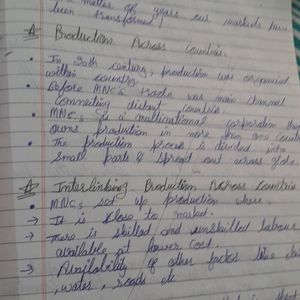 matter of years our markets have
been transformed!
Production Across Countries.
In 20th century, production was organised
within country.
Before MNCs trade was main channel
connecting distant countries.
MNCs is a multinational corporation that
owns production in more than one count
The production process is divided into
small parts & spread out across globe.
Interlinking Production Across Countries
MNCs set up production where,
→ It is close to market.
→ There is skilled and unskilled labour
available at lower cost.
→ Availability of other factors like elec
, water, roads etc